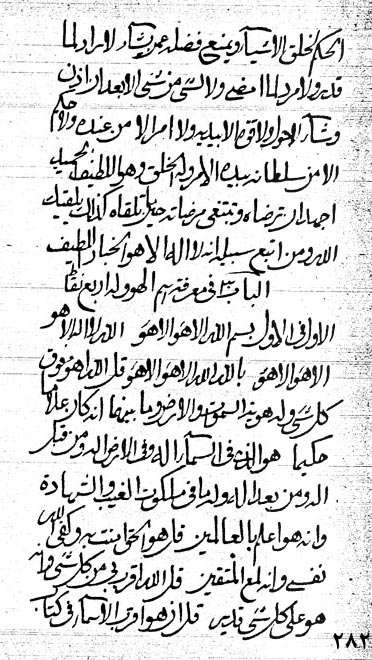 الحكم لخلق الاشياء ويمنع فضله عمن يشاء لا مراد لما
قدر ولا مرد لما امضى ولا لشئ من شئ الا بعد ان اذن
وشاء لا حول ولا قوة الا بيديه ولا امر الا من عنده ولا حكم
الا من سلطانه بيده الامر وله الخلق وهو اللطيف الحميد
ان ترضاه وتبتغى مرضاته حين تلقاه كذلك يلقيك
الله ومن اتبع سبيله انه لا اله الا هو الجبار اللطيف
الباب فى معرفة اسم الهو وله اربع
الاول فى الاول بسم الله الاهو الاهو الله لا اله الا هو
الاهو الاهو بالله الله الاهو الاهو قل الله هو فوق
كل شئ وله هو ته السموات والارض وما بينهما انه كان علاما
حكيما هو الذى فى السماء اله وفى الارض اله ومن قبل
اله ومن بعد اله وله ما فى ملكوت الغيب والشهادة
وانه هو اعلم بالعالمين قل هو الحق بنفسه وكفى الله
نفسه وانه لمع المتقين قل الله اقرب بى من كل شئ وانه
هو على كل شئ قدير قل ان هو اقرب الاسماء فى كتاب
٢٨٢